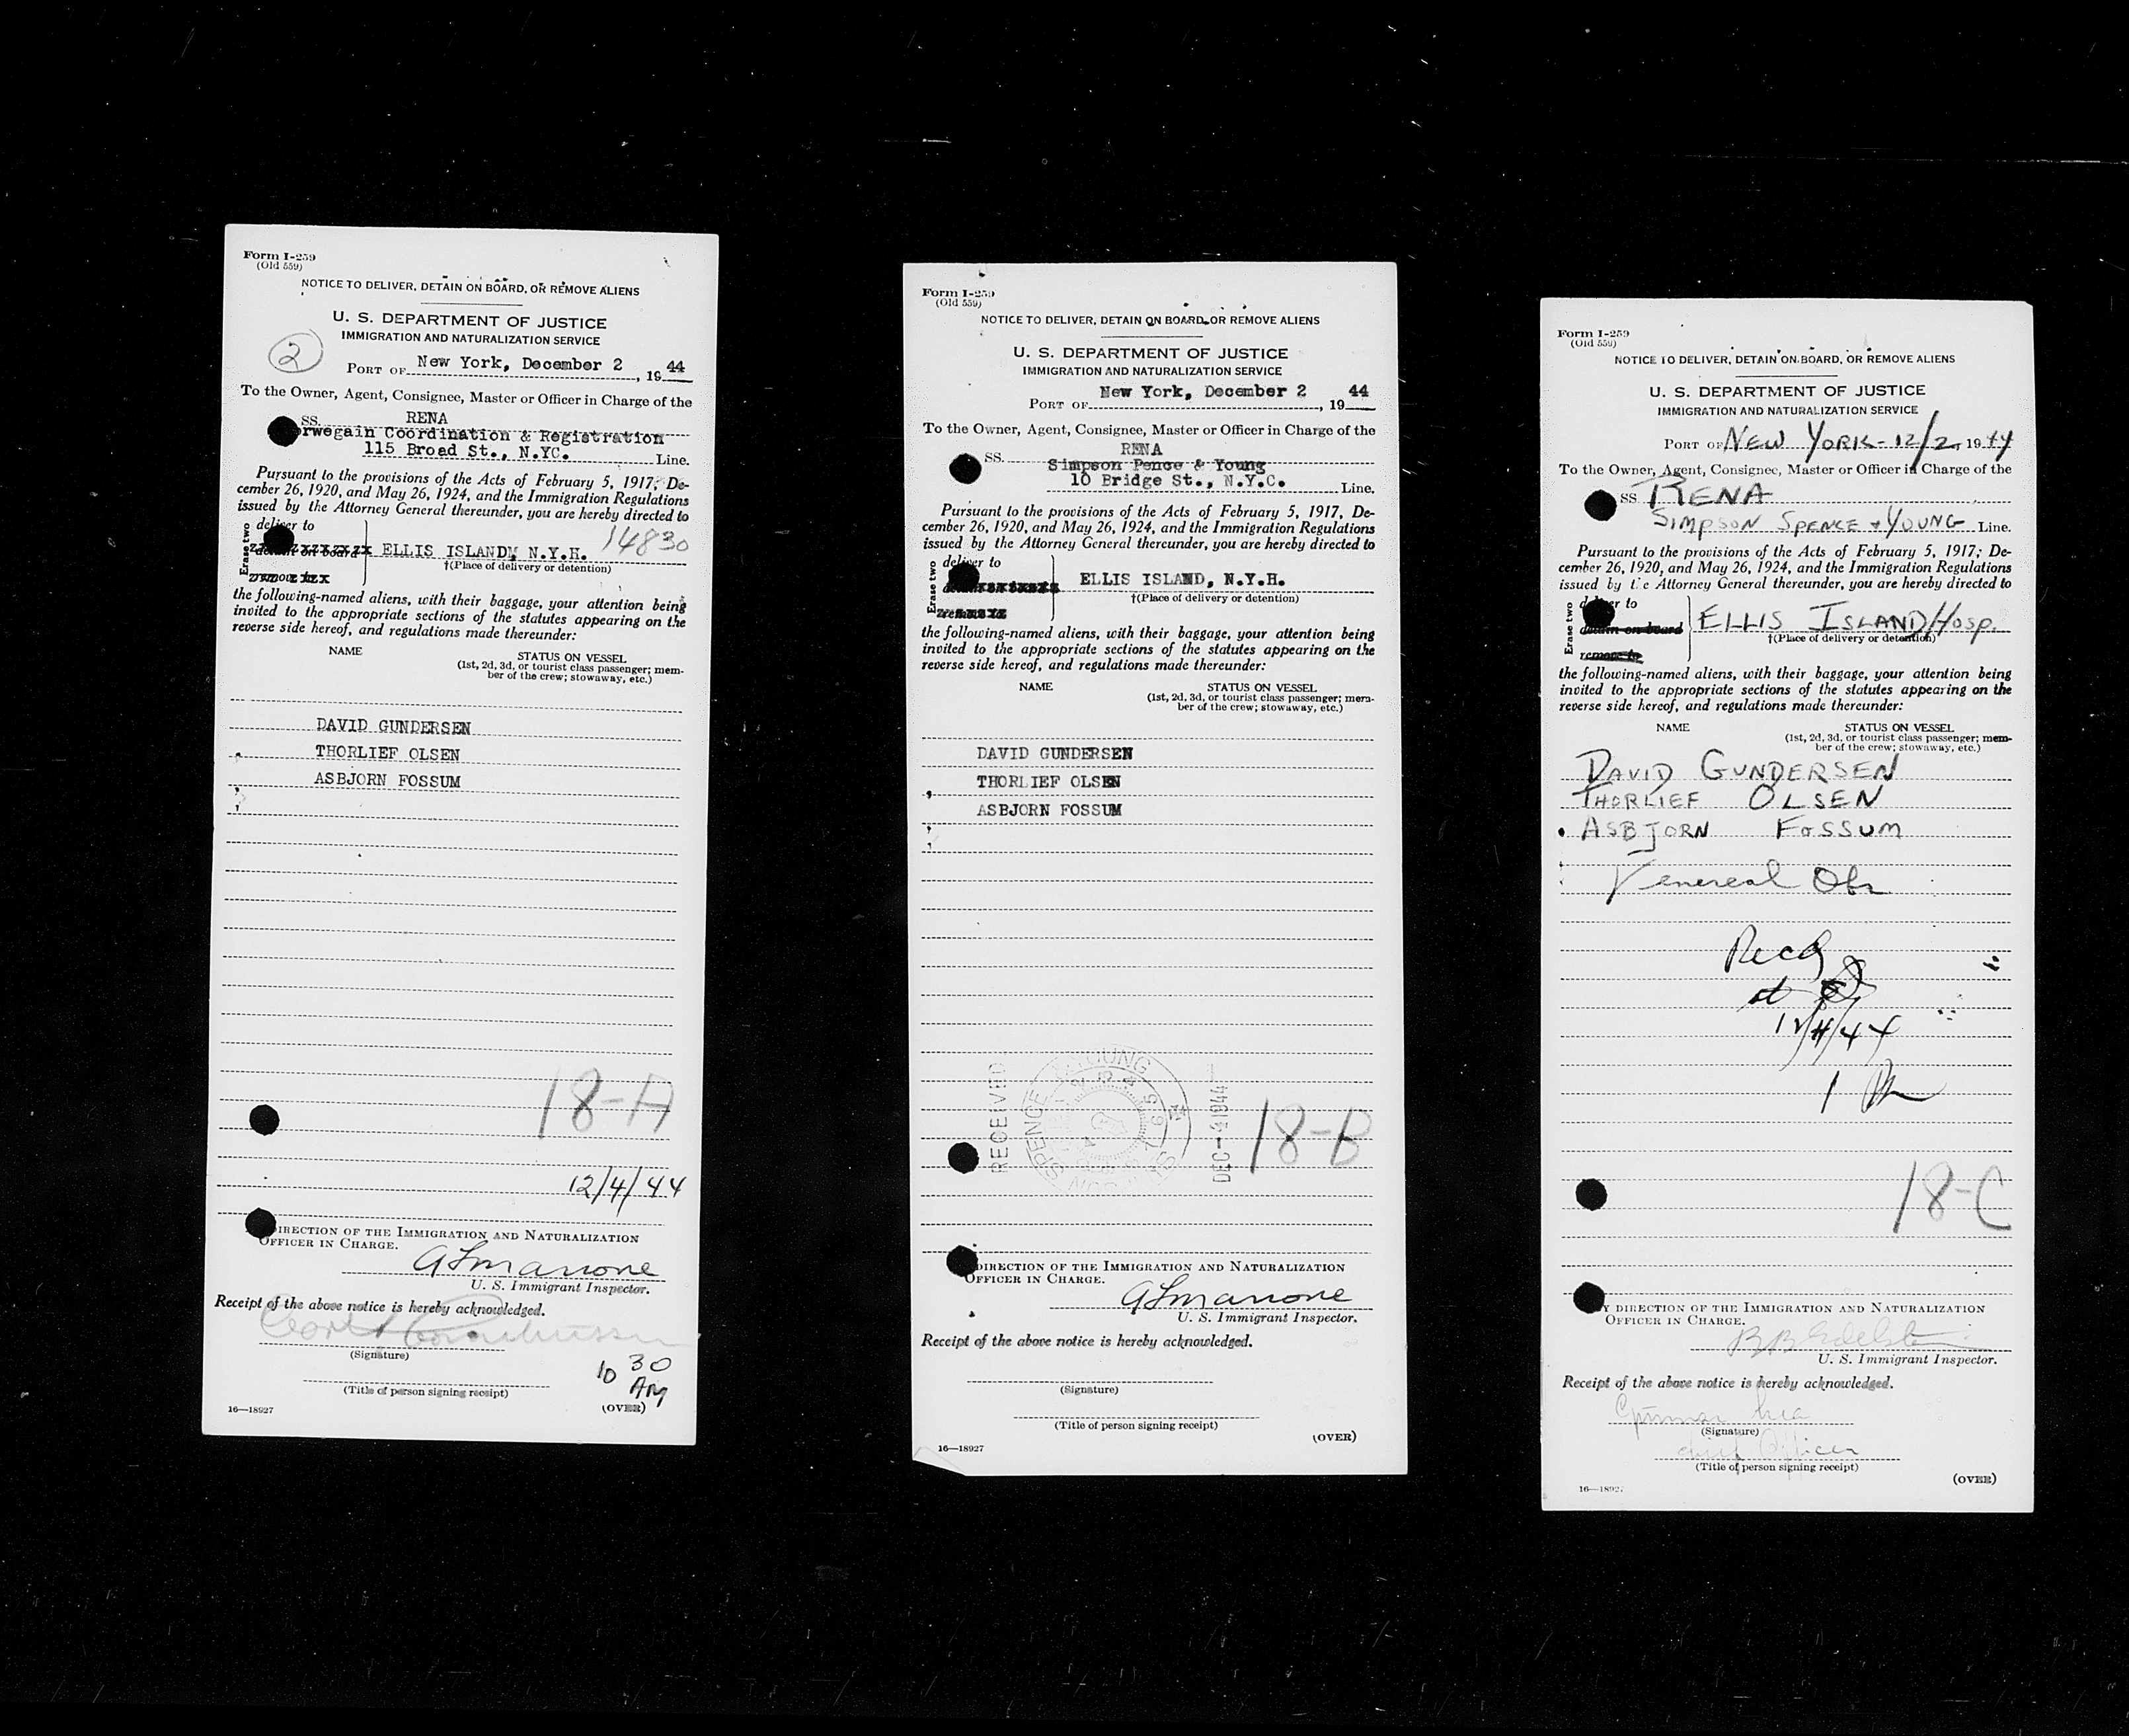 Form I-259
(Old 559)
NOTICE TO DELIVER, DETAIN ON BOARD, OR REMOVE ALIENS
U. S. DEPARTMENT OF JUSTICE
IMMIGRATION AND NATURALIZATION SERVICE
2
PORT OF New York, December 2, 1944
To the Owner, Agent, Consignee, Master or Officer in Charge of the
SS. RENA
rwegain Coordination & Registration
115 Broad St., N.YC. Line.
Pursuant to the provisions of the Acts of February 5, 1917; De-
cember 26, 1920, and May 26, 1924, and the Immigration Regulations
issued by the Attorney General thereunder, you are hereby directed to
Erase two
deliver to
14830
detain on board
ELLIS ISLAND, N.Y.H.
†(Place of delivery or detention)
remove to
the following-named aliens, with their baggage, your attention being
invited to the appropriate sections of the statutes appearing on the
reverse side hereof, and regulations made thereunder:
NAME STATUS ON VESSEL
(1st, 2d, 3d, or tourist class passenger; mem-
ber of the crew; stowaway, etc.)
DAVID GUNDERSEN
THORLIEF OLSEN
ASBJORN FOSSUM
18-A
12/4/44
DIRECTION OF THE IMMIGRATION AND NATURALIZATION
OFFICER IN CHARGE.
U. S. Immigrant Inspector.
Receipt of the above notice is hereby acknowledged.
(Signature)
10 30
AM
(Title of person signing receipt)
16—18927 (OVER)
Form I-259
(Old 559)
NOTICE TO DELIVER, DETAIN ON BOARD, OR REMOVE ALIENS
U. S. DEPARTMENT OF JUSTICE
IMMIGRATION AND NATURALIZATION SERVICE
PORT OF New York, December 2, 1944
To the Owner, Agent, Consignee, Master or Officer in Charge of the
SS. RENA
Simpson Pence & Young
10 Bridge St., N.Y.C. Line.
Pursuant to the provisions of the Acts of February 5, 1917, De-
cember 26, 1920, and May 26, 1924, and the Immigration Regulations
issued by the Attorney General thereunder, you are hereby directed to
Erase two
deliver to
detain
ELLIS ISLAND, N.Y.H.
†(Place of delivery or detention)
remove to
the following-named aliens, with their baggage, your attention being
invited to the appropriate sections of the statutes appearing on the
reverse side hereof, and regulations made thereunder:
NAME STATUS ON VESSEL
(1st, 2d, 3d, or tourist class passenger; mem-
ber of the crew; stowaway, etc.)
DAVID GUNDERSEN
THORLIEF OLSEN
ASBJORN FOSSUM
RECEIVED
SPENCE & YOUNG
DEC-4 1944
18-B
DIRECTION OF THE IMMIGRATION AND NATURALIZATION
OFFICER IN CHARGE.
U. S. Immigrant Inspector.
Receipt of the above notice is hereby acknowledged.
(Signature)
(Title of person signing receipt)
(OVER)
16—18927
Form I-259
(Old 559)
NOTICE TO DELIVER, DETAIN ON BOARD, OR REMOVE ALIENS
U. S. DEPARTMENT OF JUSTICE
IMMIGRATION AND NATURALIZATION SERVICE
PORT OF NEW YORK - 12/2, 1944
To the Owner, Agent, Consignee, Master or Officer in Charge of the
SS RENA
SIMPSON SPENCE & YOUNG Line.
Pursuant to the provisions of the Acts of February 5, 1917; De-
cember 26, 1920, and May 26, 1924, and the Immigration Regulations
issued by the Attorney General thereunder, you are hereby directed to
Erase two
deliver to
detain on board
ELLIS ISLAND Hosp.
†(Place of delivery or detention)
remove to
the following-named aliens, with their baggage, your attention being
invited to the appropriate sections of the statutes appearing on the
reverse side hereof, and regulations made thereunder:
NAME STATUS ON VESSEL
(1st, 2d, 3d, or tourist class passenger; mem-
ber of the crew; stowaway, etc.)
DAVID GUNDERSEN
THORLIEF OLSEN
ASBJORN FOSSUM
Venereal Obs
Recd
at
12/4/44
1 PM
18-C
Y DIRECTION OF THE IMMIGRATION AND NATURALIZATION
OFFICER IN CHARGE.
U. S. Immigrant Inspector.
Receipt of the above notice is hereby acknowledged.
(Signature)
Chief Officer
(Title of person signing receipt)
(OVER)
16—18927